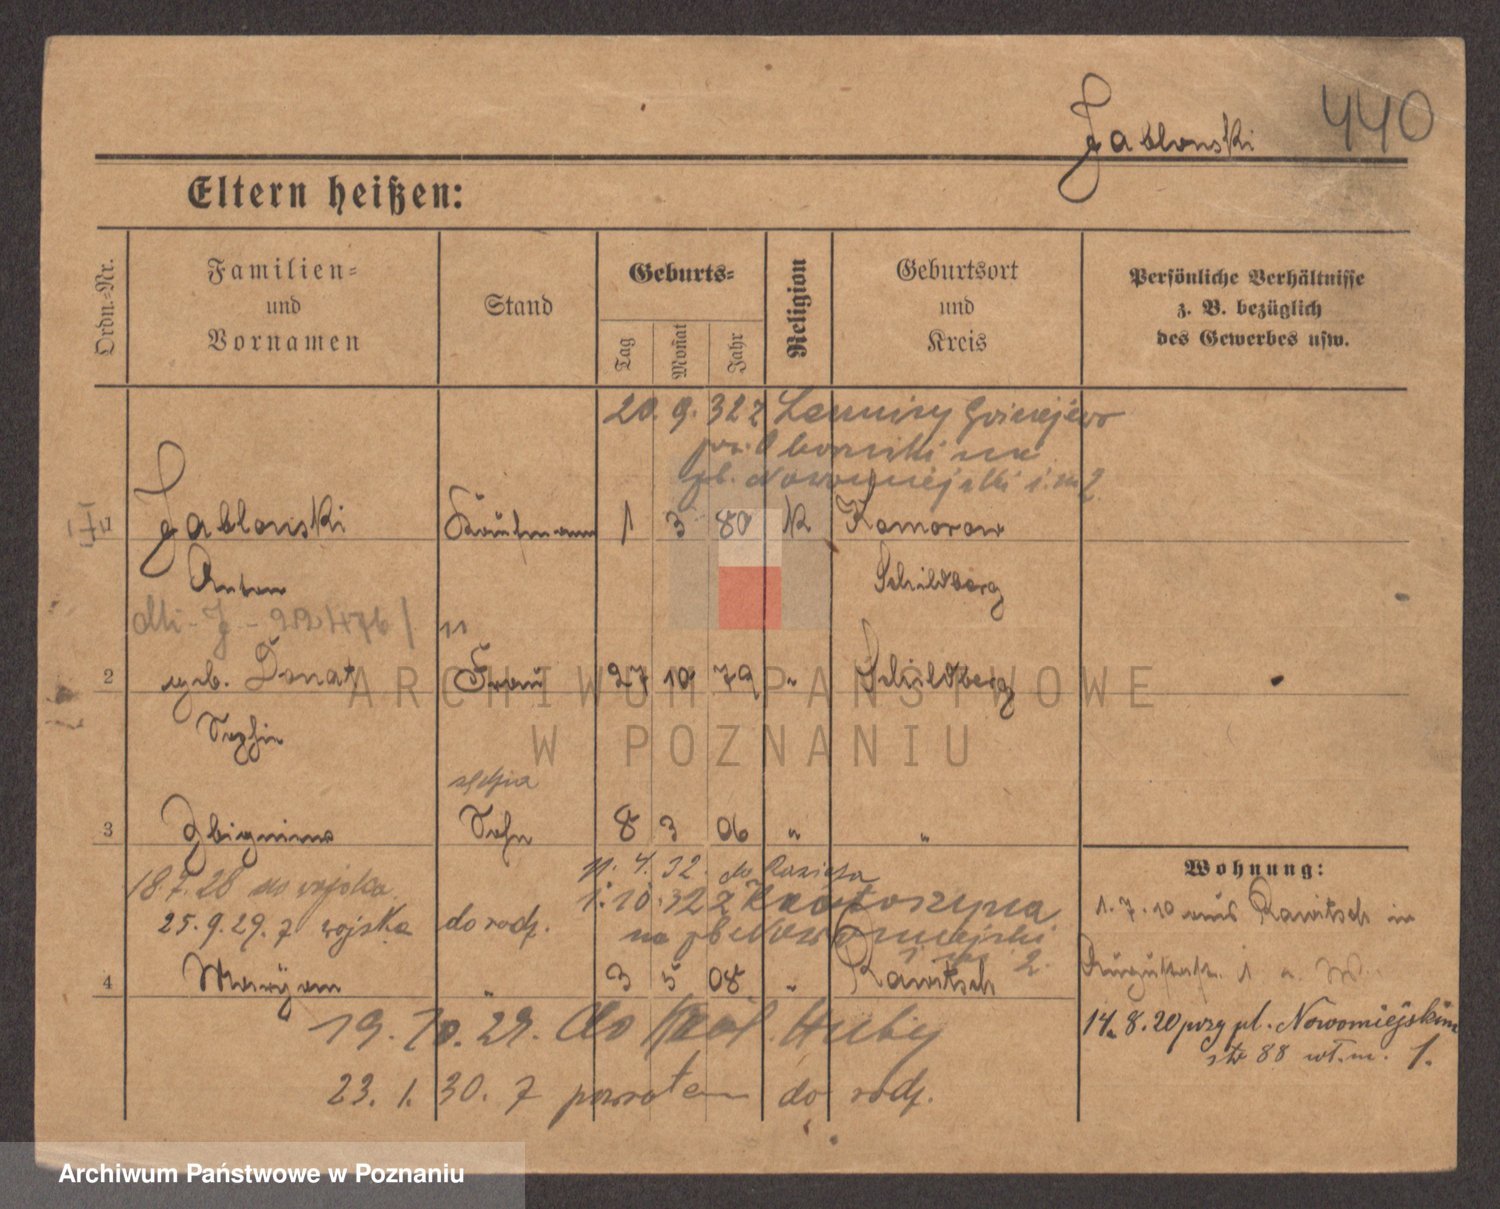 440
Jablonski
Eltern heißen:
Ordn.-Nr.
Familien-
und
Vornamen
Stand
Geburts-
Tag
Monat
Jahr
Religion
Geburtsort
und
Kreis
Persönliche Verhältnisse
z. B. bezüglich
des Gewerbes usw.
20. 9. 32 z
na
pl. Nowomiejski
1 Jablonski Kaufmann 1 3 80 k Komorow
Anton Schildberg
2 geb. Donat Frau 27 10 79 " Schildberg
Sophie
ARCHIWUM PAŃSTWOWE
W POZNANIU
sędzia
3 Zbigniew Sohn 8 3 06 " "
11. 4. 32. do
18.7.28 do wojska
1. 10. 32 z Krotoszyna
25.9.29. z wojska do rodz.
na pl. Nowomiejski
2.
4 Maryan " 3 5 08 " Rawitsch
19. 10. 29. do Król. Huty
23. 1. 30. z powrotem do rodz.
Wohnung:
1. 7. 10 aus Rawitsch in
14. 8. 20 przy pl. Nowomiejskim
88 1.
Archiwum Państwowe w Poznaniu